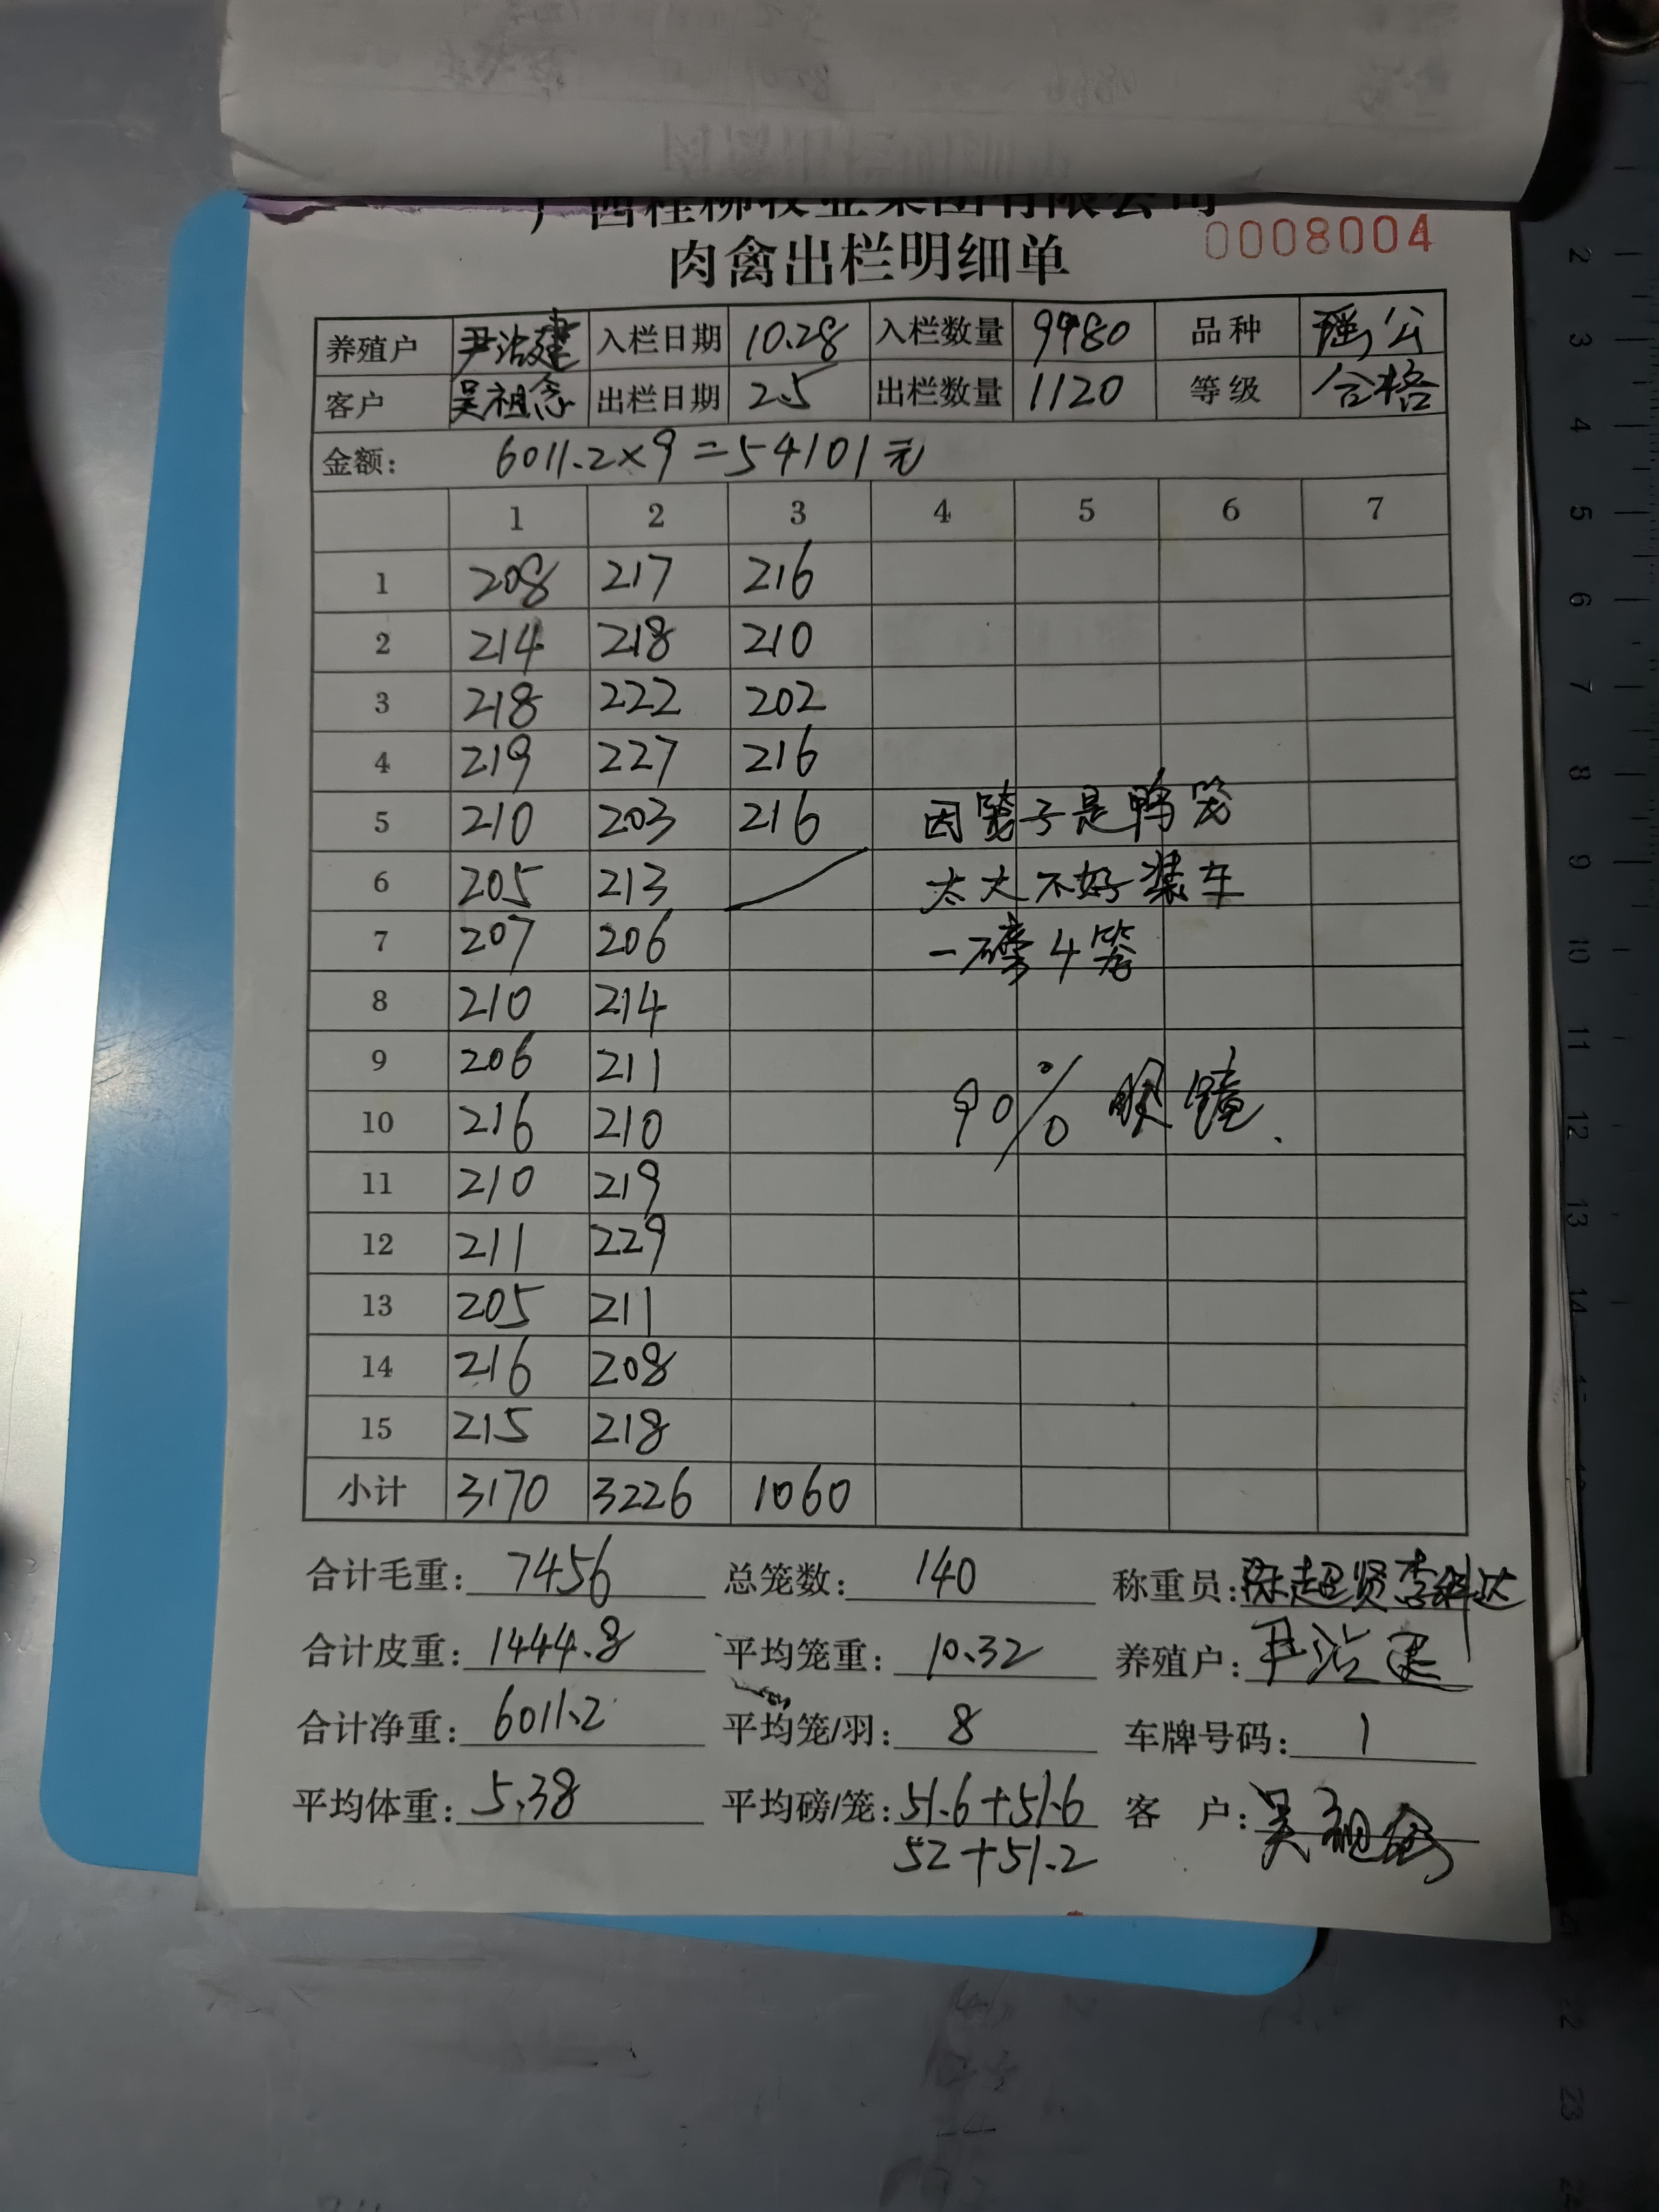 广西桂柳牧业集团有限公司
肉禽出栏明细单 0008004
养殖户 尹治建 入栏日期 10.28 入栏数量 9980 品种 瑶公
客户 吴祖念 出栏日期 2.5 出栏数量 1120 等级 合格
金额: 6011.2×9=54101元
1 2 3 4 5 6 7
1 208 217 216
2 214 218 210
3 218 222 202
4 219 227 216
5 210 203 216 因笼子是鸭笼
6 205 213 太大不好装车
7 207 206 一磅4笼
8 210 214
9 206 211
10 216 210 90% 眼镜.
11 210 219
12 211 229
13 205 211
14 216 208
15 215 218
小计 3170 3226 1060
合计毛重: 7456 总笼数: 140 称重员: 陈超贤李科达
合计皮重: 1444.8 平均笼重: 10.32 养殖户: 尹治建
合计净重: 6011.2 平均笼/羽: 8 车牌号码: 1
平均体重: 5.38 平均磅/笼: 51.6+51.6 客户: 吴祖念
52+51.2